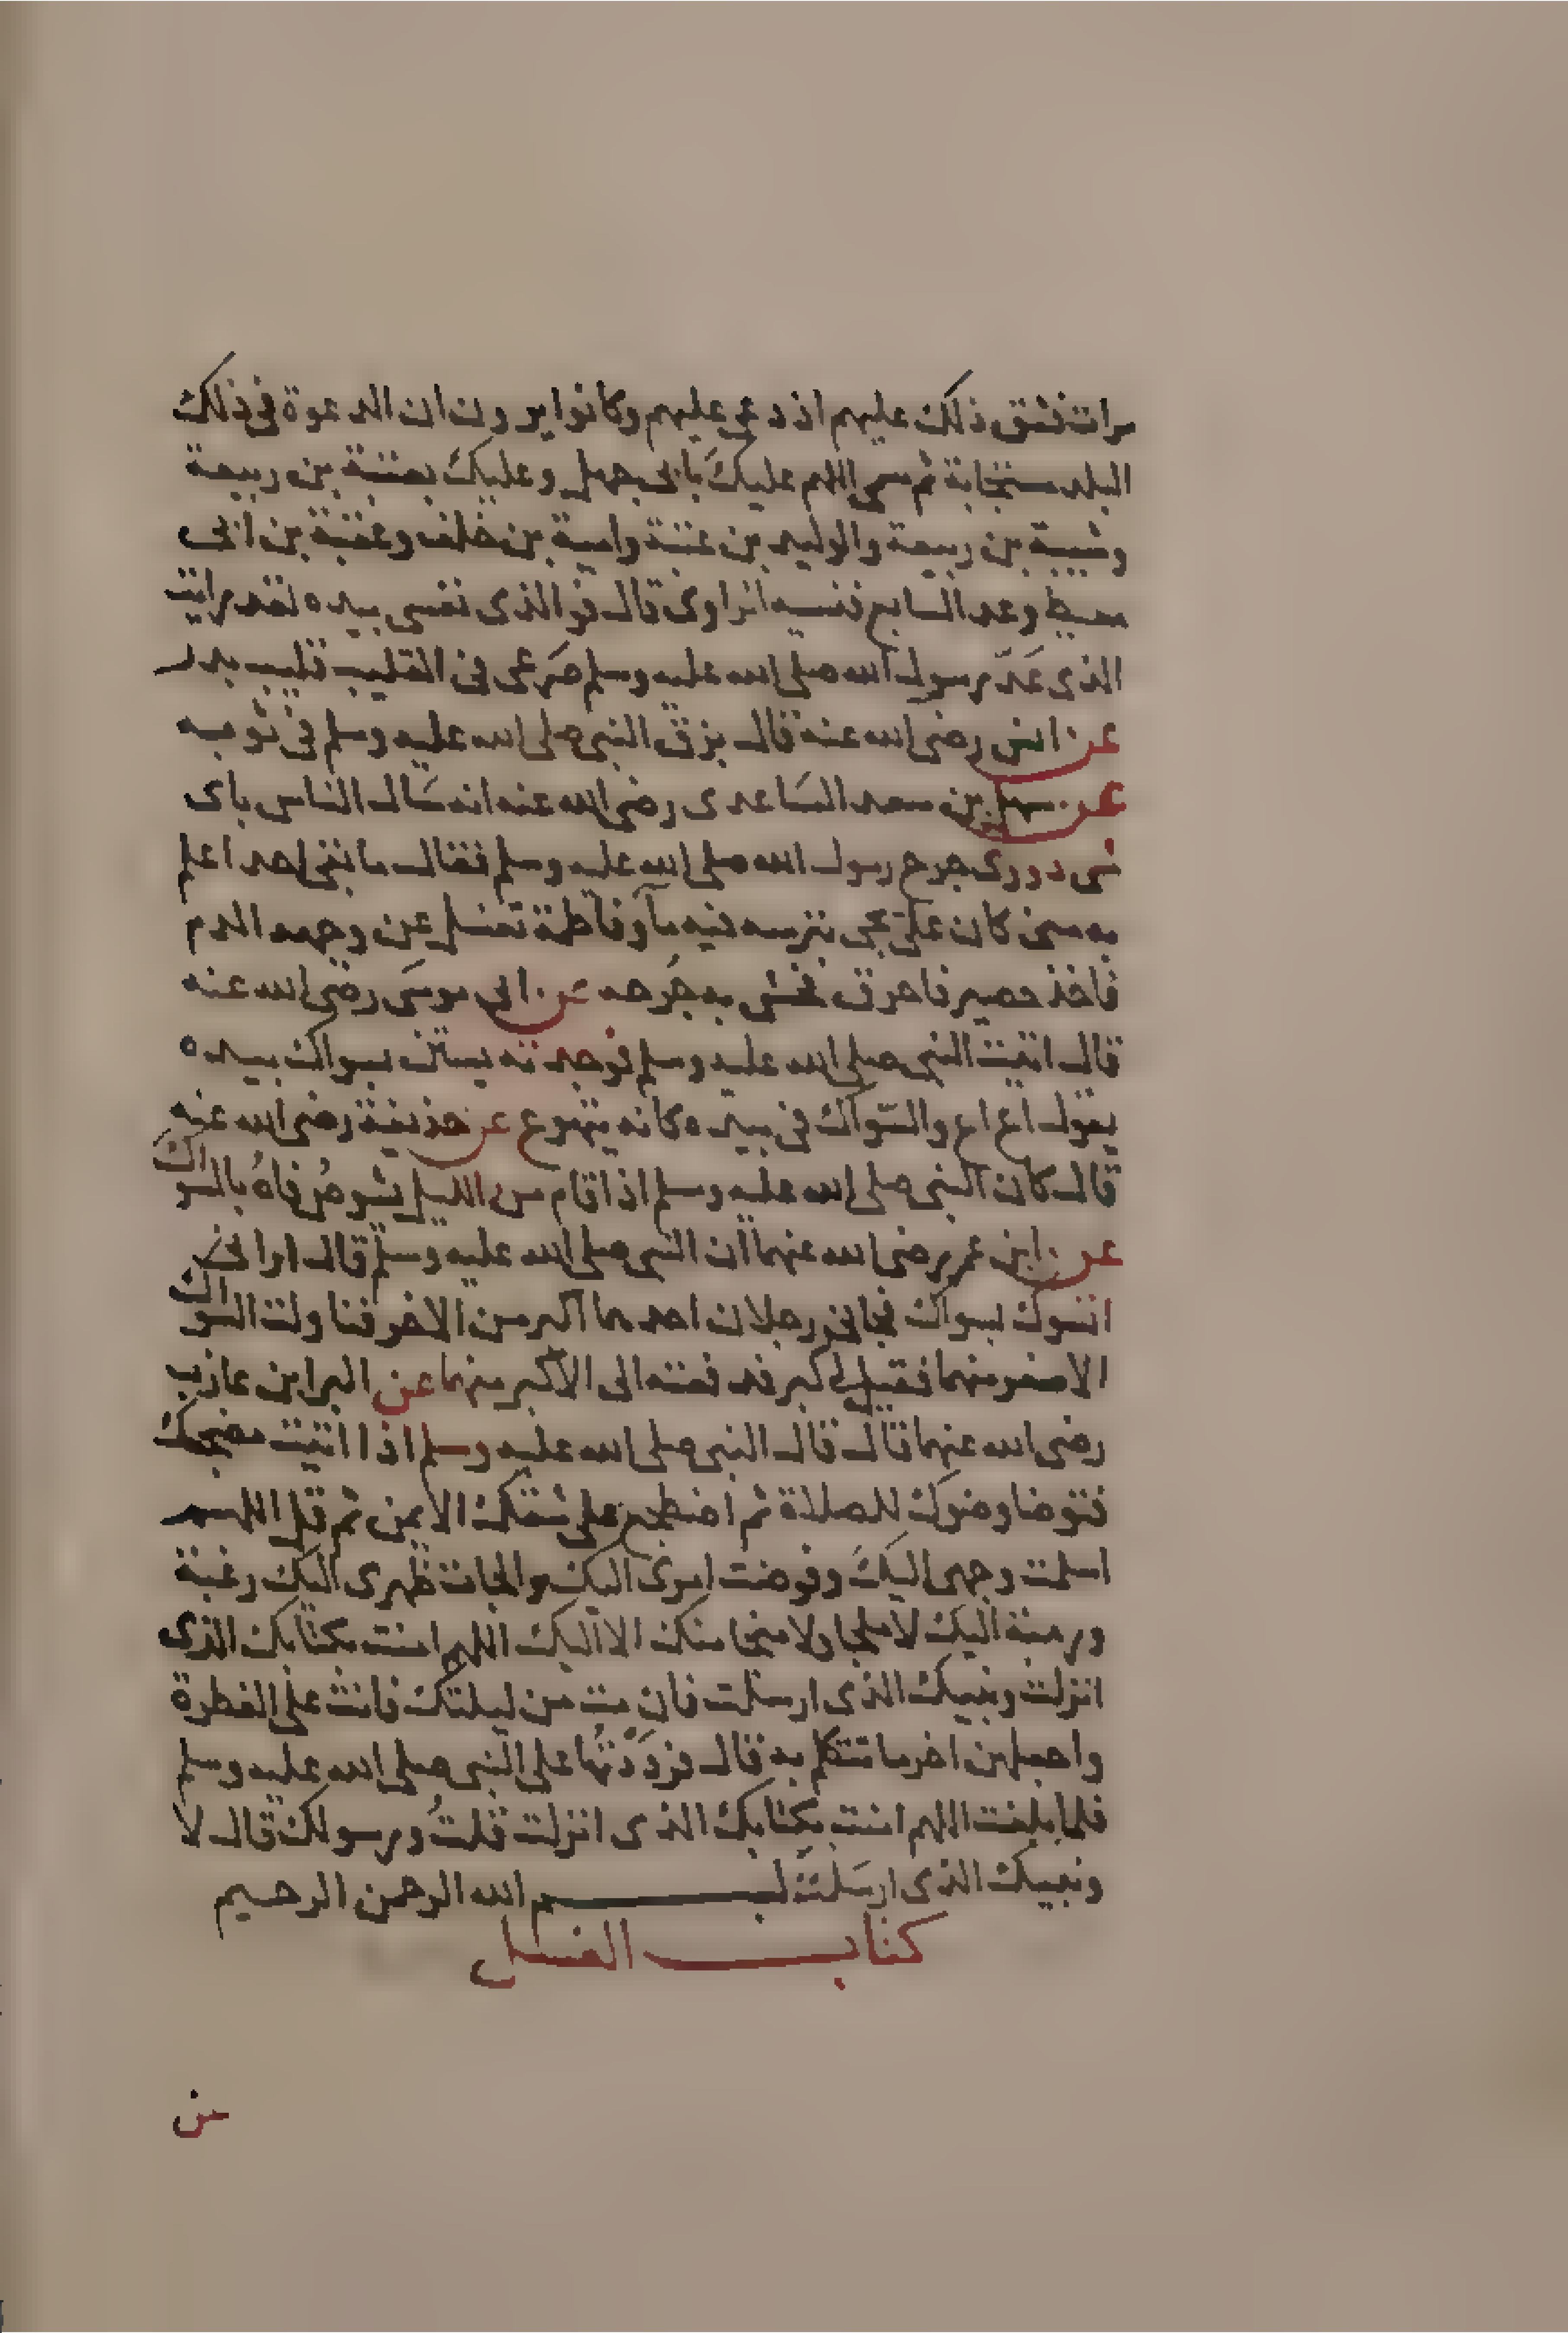 مرات فشق ذلك عليهم اذ دعى عليهم وكانوا يرون ان الدعوة فى ذلك
البلد مستجابة ثم سمى اللهم عليك بابى جهل وعليك بعتبة بن ربيعة
وشيبة بن ربيعة والوليد بن عتبة وامية بن خلف وعقبة بن ابى
معيط وعد السابع فنسيه الراوى قال فو الذى نفسى بيده لقد رايت
الذى عَدّ رسول الله صلى الله عليه وسلم صَرعى فى القليب قليب بدر
عن انس رضى الله عنه قال بزق النبى صلى الله عليه وسلم فى ثوبه
عن سهل بن سعد السَاعدى رضى الله عنه انه سَال الناس باى
شى دورى جرح رسول الله صلى الله عليه وسلم فقال ما بقى احد اعلم
به منى كان علىّ يجى بترسه فيه مآ وفاطمة تغسل عن وجهه الدم
فاخذ حصير فاحرق فحشى به جُرحه عن ابى موسَى رضى الله عنه
قال اتيت النبى صلى الله عليه وسلم فوجدته يستن بسواك بيده
يقول اع اع والسّواك فى فيه كانه يتهوع عن حذيفة رضى الله عنه
قال كان النبى صلى الله عليه وسلم اذا قام من الليل يشوصُ فاهُ بالسواك
عن ابن عمر رضى الله عنهما ان النبى صلى الله عليه وسلم قال ارانى
اتسوك بسواك فجانى رجلان احدهما اكبر من الاخر فناولت السواك
الاصغر منهما فقيل لى كبر فدفعته الى الاكبر منهما عن البرا بن عازب
رضى الله عنهما قال قال النبى صلى الله عليه وسلم اذا اتيت مضجعك
فتوضا وضوك للصلاة ثم اضطجع على شقك الايمن ثم قل اللهم
اسلمت وجهى اليك وفوضت امرى اليك والجات ظهرى اليك رغبة
ورهبة اليك لا ملجا ولا منجا منك الا اليك اللهم امنت بكتابك الذى
انزلت ونبيك الذى ارسلت فان مت من ليلتك فانت على الفطرة
واجعلهن اخر ما تتكلم به قال فردَدّتُها على النبى صلى الله عليه وسلم
فلما بلغت اللهم امنت بكتابك الذى انزلت قلتُ ورسولك قال لا
ونبيك الذى ارسَلت بسم الله الرحمن الرحيم
كتاب الغسل